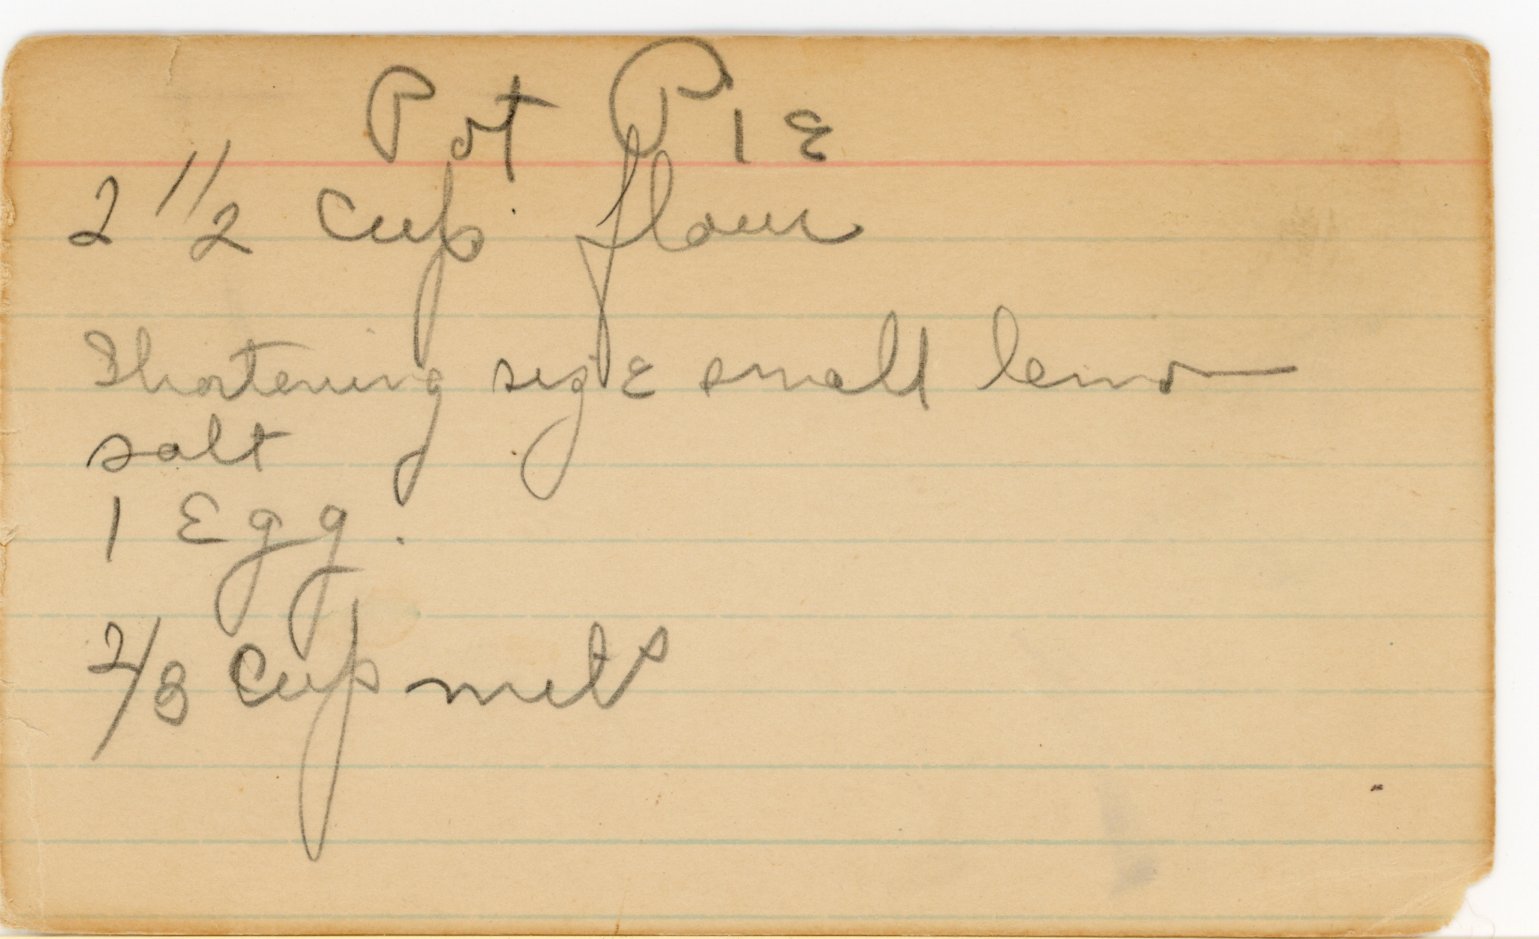 Pot Pie
2 1/2 cup flour
Shortening size small lemon
salt
1 Egg.
2/3 cup milk